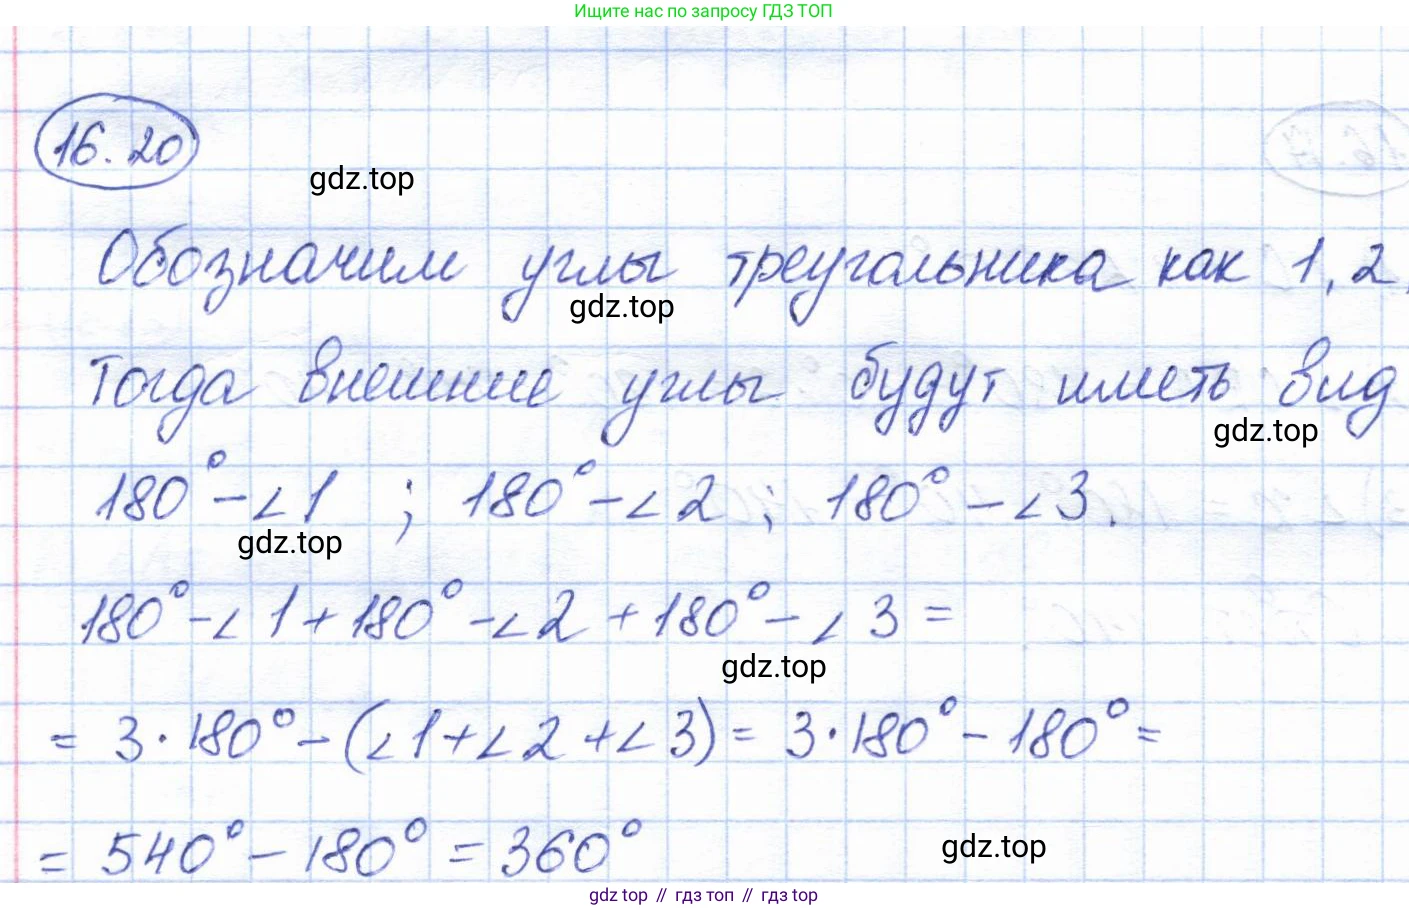 Ищите нас по запросу ГДЗ ТОП
16.20
gdz.top
Обозначим углы треугольника как 1, 2,
gdz.top
Тогда внешние углы будут иметь вид
gdz.top
180° - ∠1 ; 180° - ∠2 ; 180° - ∠3.
gdz.top
180° - ∠1 + 180° - ∠2 + 180° - ∠3 =
gdz.top
= 3·180° - (∠1 + ∠2 + ∠3) = 3·180° - 180° =
= 540° - 180° = 360°
gdz.top
gdz top // гдз топ // гдз top